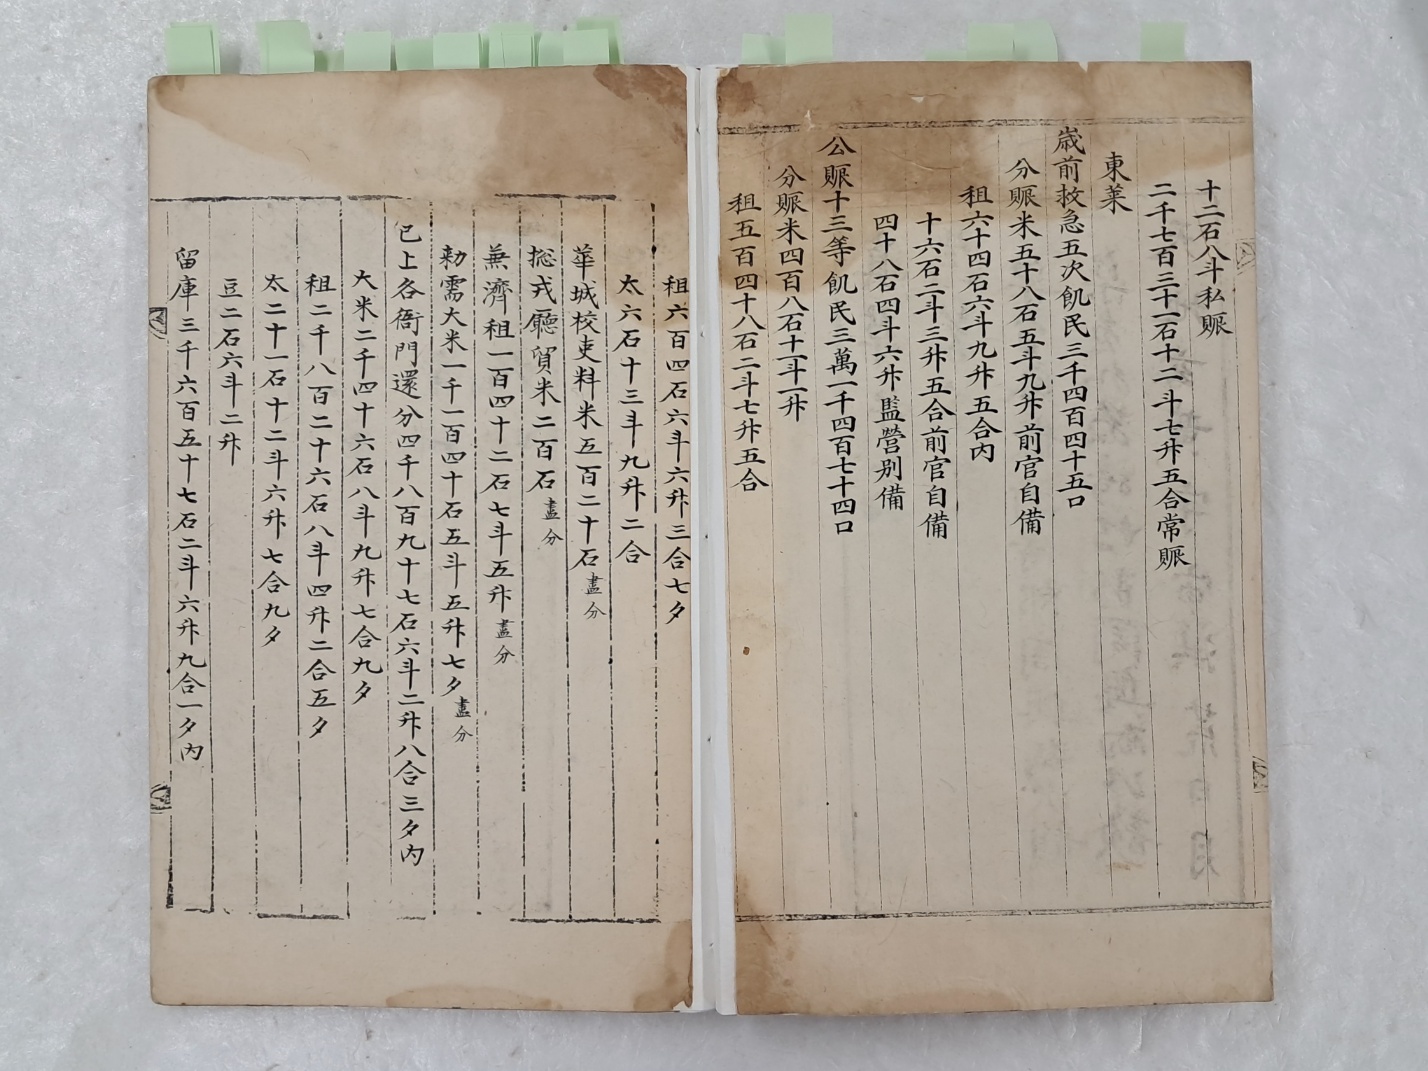 十二石八斗私賑
二千七百三十一石十二斗七升五合常賑
東萊
歲前救急五次飢民三千四百四十五口
分賑米五十八石五斗九升前官自備
租六十四石六斗九升五合內
十六石二斗三升五合前官自備
四十八石四斗六升監營別備
公賑十三等飢民三萬一千四百七十四口
分賑米四百八石十一斗一升
租五百四十八石二斗七升五合
租六百四石六斗六升三合七夕
太六石十三斗九升二合
華城校吏料米五百二十石盡分
摠戎廳貿米二百石盡分
兼濟租一百四十二石七斗五升盡分
勅需大米一千一百四十石五斗五升七夕盡分
已上各衙門還分四千八百九十七石六斗二升八合三夕內
大米二千四十六石八斗九升七合九夕
租二千八百二十六石八斗四升二合五夕
太二十一石十二斗六升七合九夕
豆二石六斗二升
留庫三千六百五十七石二斗六升九合一夕內